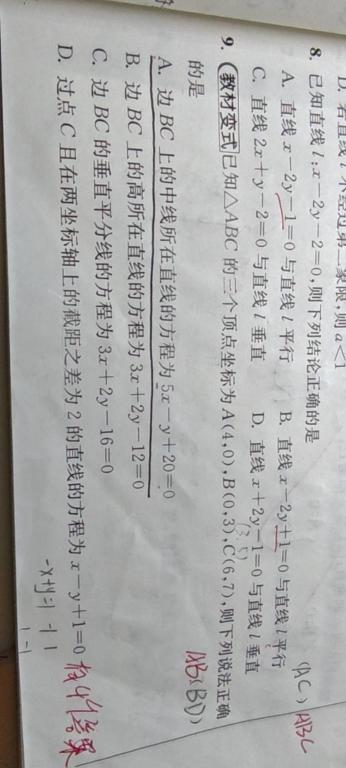 D. 若直线 l 不经过第二象限,则 a<1
8. 已知直线 l:x-2y-2=0,则下列结论正确的是
A. 直线 x-2y-1=0 与直线 l 平行 B. 直线 x-2y+1=0 与直线 l 平行
C. 直线 2x+y-2=0 与直线 l 垂直 D. 直线 x+2y-1=0 与直线 l 垂直
(AC) ABC
9. 教材变式 已知△ABC 的三个顶点坐标为 A(4,0),B(0,3),C(6,7),则下列说法正确
的是
AB(BD)
A. 边 BC 上的中线所在直线的方程为 5x-y+20=0
B. 边 BC 上的高所在直线的方程为 3x+2y-12=0
C. 边 BC 的垂直平分线的方程为 3x+2y-16=0
D. 过点 C 且在两坐标轴上的截距之差为 2 的直线的方程为 x-y+1=0
-x+y=1 -1 1
1 -1